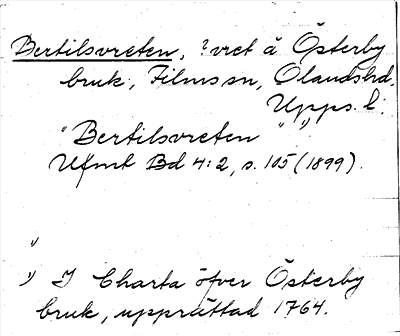 Bertilsvreten, ? vret å Österby
bruk, Films sn, Olandshd.
Upps. l.
"Bertilsvreten" 1)
Ufmt Bd 4:2, s. 105 (1899).
1) I Charta öfver Österby
bruk, upprättad 1764.